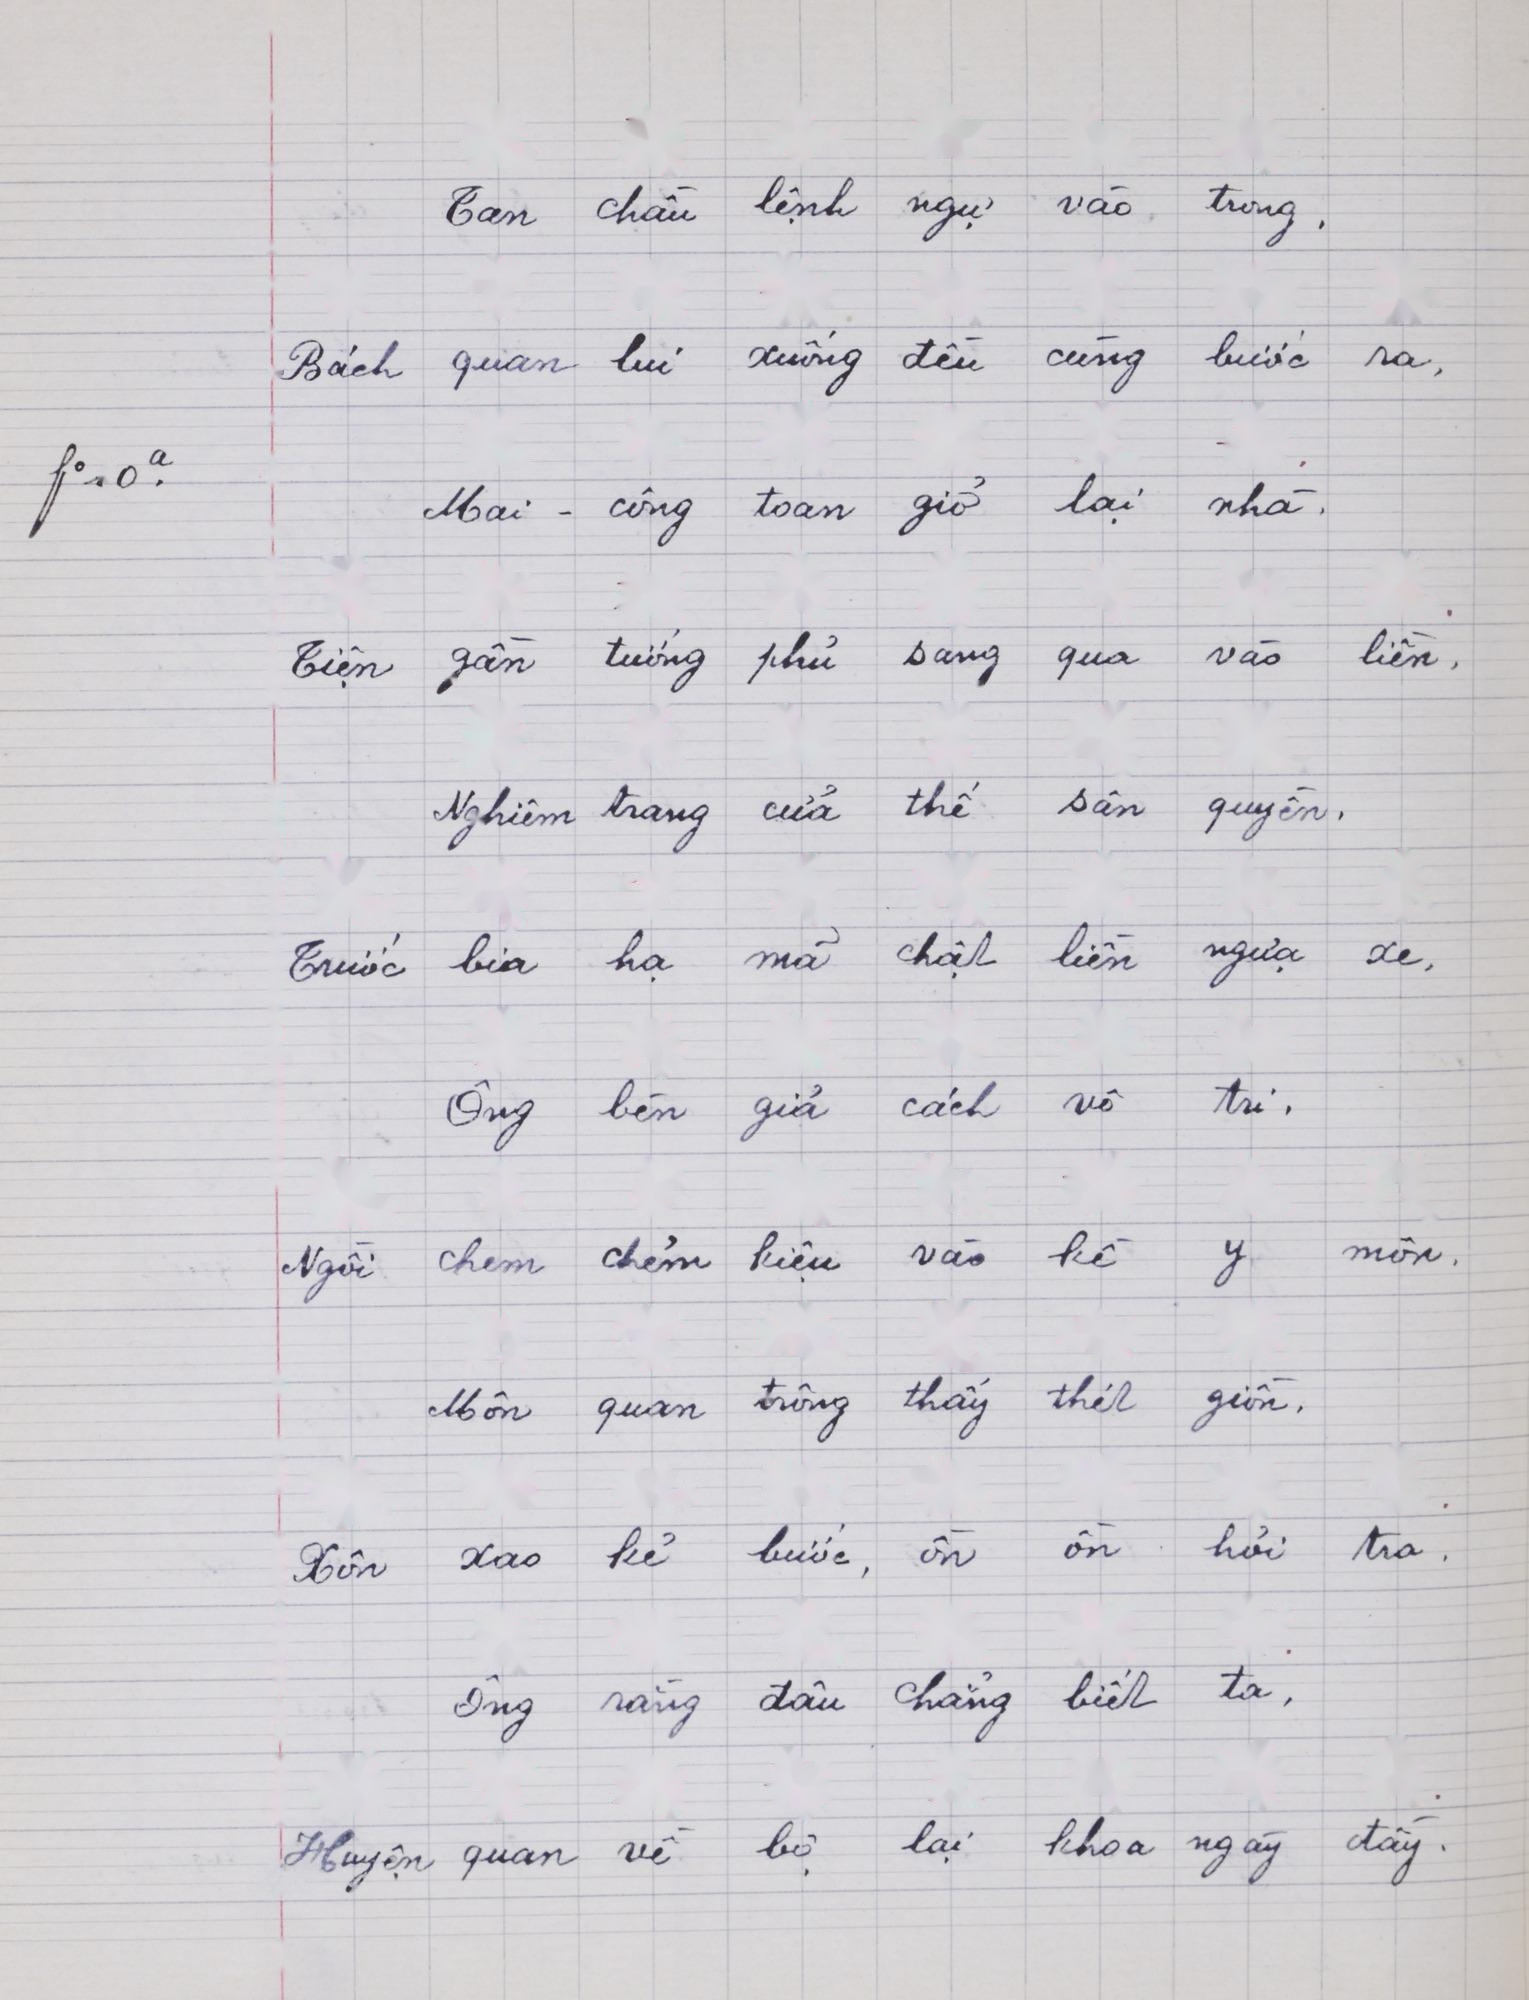 Tan chầu lệnh ngự vào trong,
Bách quan lui xuống đều cùng bước ra,
Mai - công toan giở lại nhà.
Tiện gần tướng phủ sang qua vào liền,
Nghiêm trang cửa thế sân quyền,
Trước bia hạ mã chật liền ngựa xe,
Ông bèn giả cách vô tri,
Ngồi chem chẻm kiệu vào kề y môn.
Môn quan trông thấy thét giồn,
Xôn xao kẻ bước, ồn ồn hỏi tra.
Ông rằng đâu chẳng biết ta,
Huyện quan về bộ lại khoa ngày đầy.